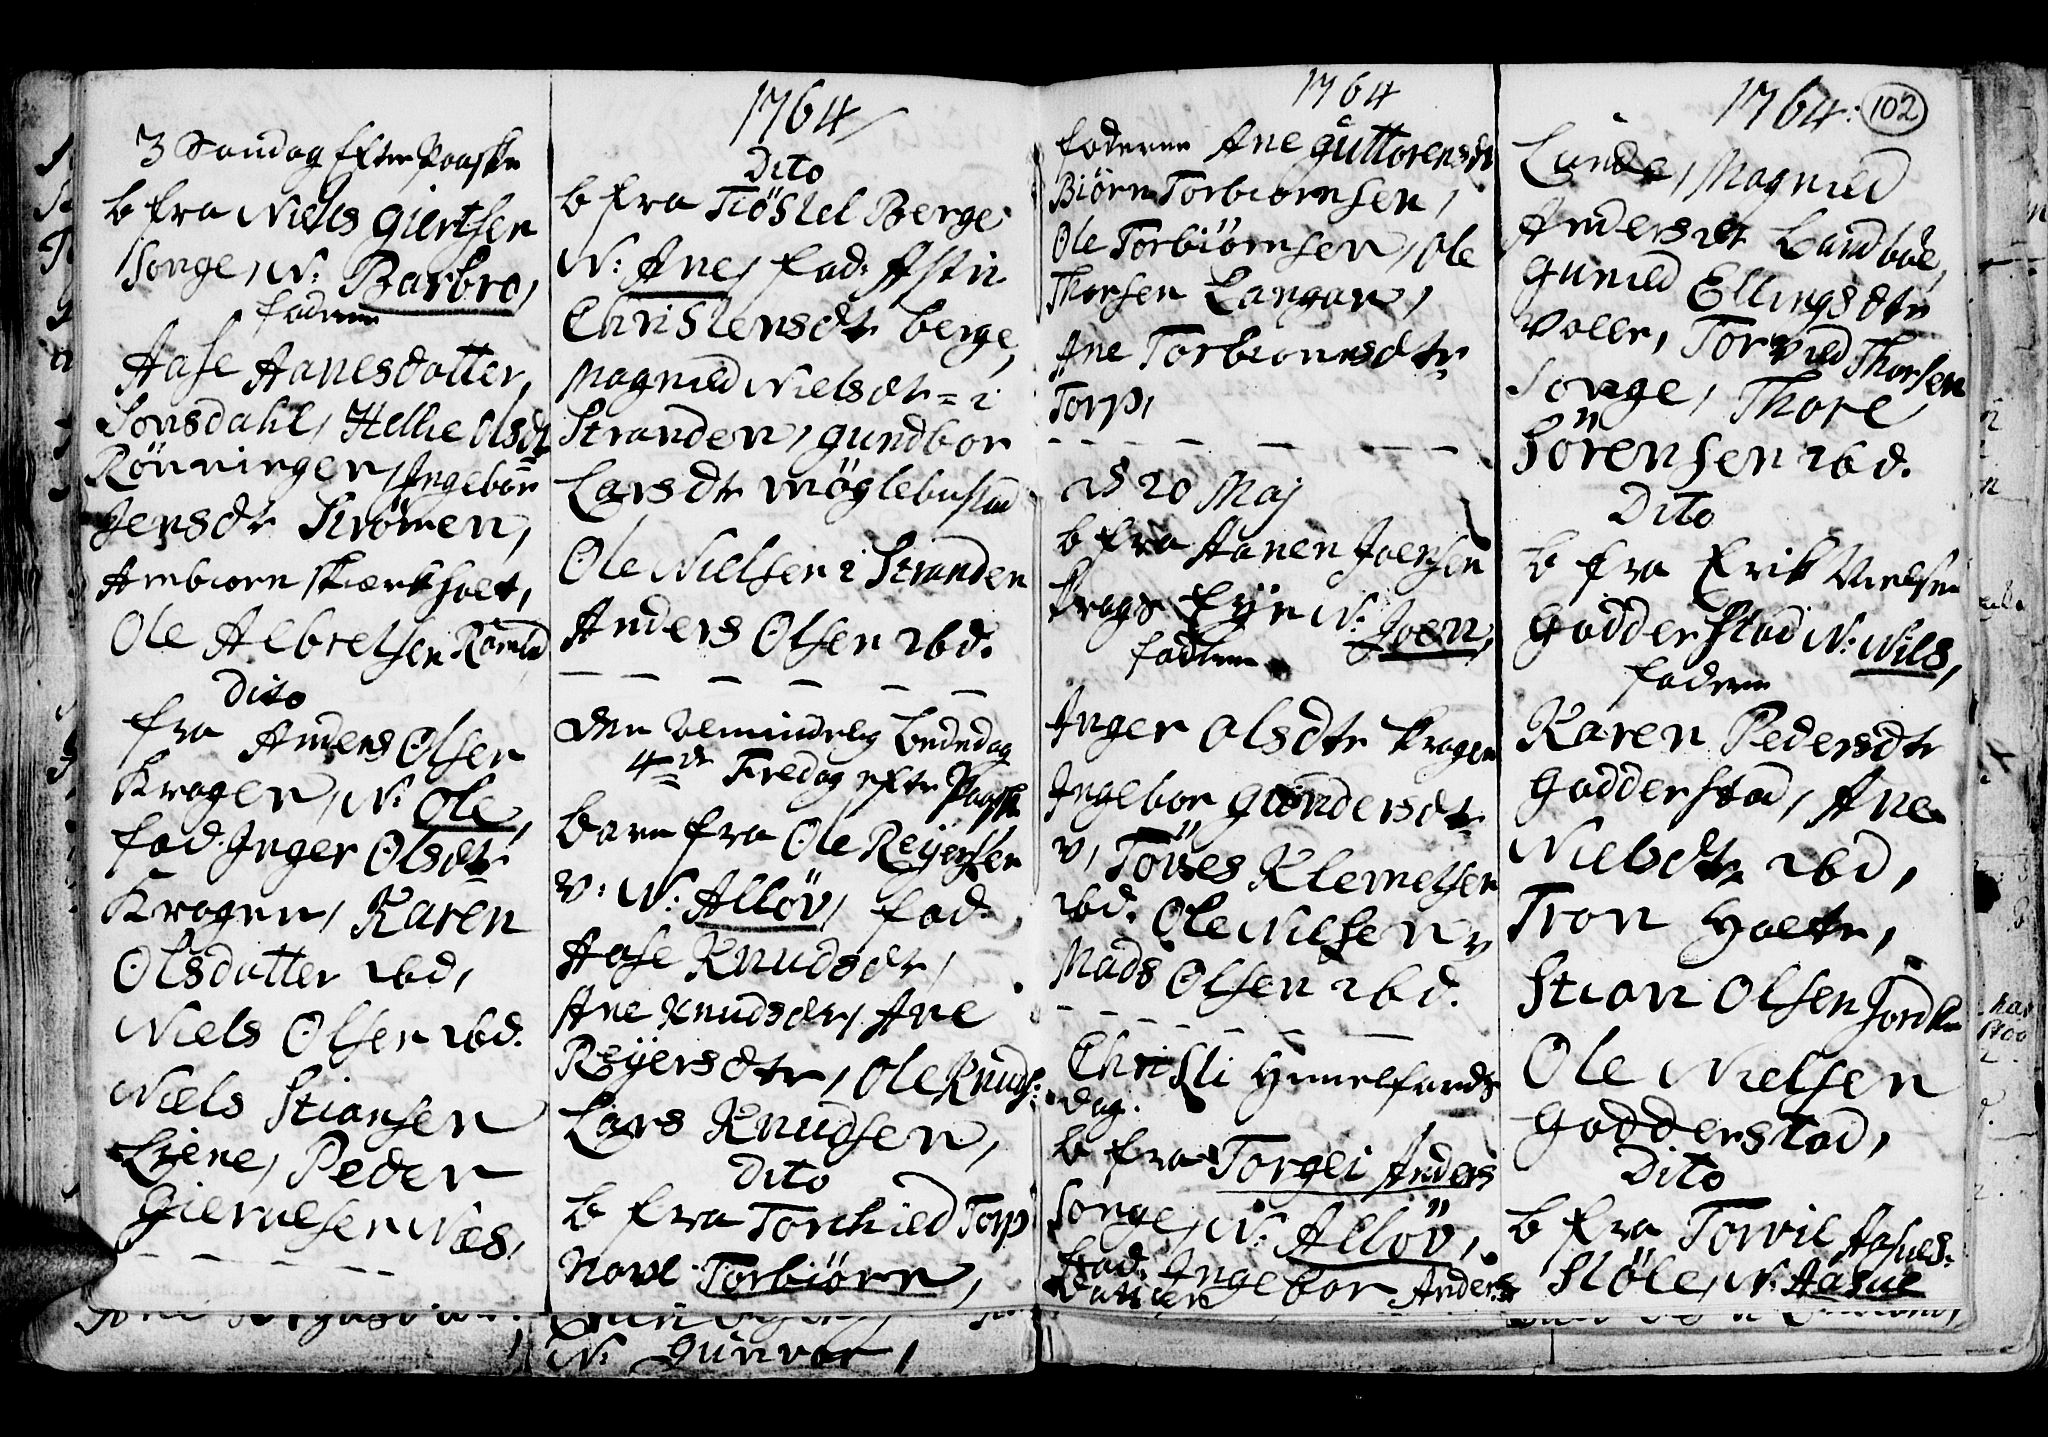 3 Søndag Efter Paaske
b fra Niels Giertsen
Songe, N: Barbro,
faderne
Aase Aanesdatter,
Sonsdahl, Hellie Olsdt
Rönningen, Ingebor
Jensdr Strömen,
Arnbiorn
Ole Albretsen
Dito
fra Anders Olsen
Kragen, N: Ole,
fad. Inger Olsdtr
Kragen, Karen
Olsdatter ibd,
Niels Olsen ibd.
Niels Stiansen
Liene, Peder
Giervelsen Næs,
1764
Dito
b fra Tiöstel Berge
N: Ane, fad: Astri
Christensdtr berge,
Magnild Nielsdt = i
Stranden, gundbor
Larsdtr möglebustad
Ole Nielsen i Stranden
Anders Olsen ibd.
Den Almindelig Bededag
4de Fredag efter Paaske
barn fra Ole Reÿersen
v: N: Allöv, fad.
Aase Knudsdr,
Ane Knudsdr, Ane
Reÿersdtr, Ole Knuds:
Lars Knudsen,
Dito
b fra Torkield Torp
Navl. Torbiörn,
1764
faderne Ane guttorensdr
Biörn Torbiornsen,
Ole Torbiörnsen, Ole
Thorsen Langan,
Ane Torbiornsdtr
Torp,
d 20 Maj
b fra Aanen Joensen
Krags Eÿe N: Joen,
faderne
Inger Olsdtr Kragen
Ingebor gundersdtr
v, Töves Klemetsen
ibd. Ole Nielsen v
Mads Olsen ibd.
Christi Himmelfards
dag.
b fra Torgei Anders
Songe, N: Allöv,
fad. Ingebor Anders
datter
1764: 102
Lunde, Magnild
Andersdt Landböe,
Gunild Ellingsdtr
Voler, Torvild Thorsen
Songe, Thore
Sörensen ibd.
Dito
b fra Erik Nielsen
Gadderstad N: Nils,
faderne
Karen Pedersdtr
Gadderstad, Ane
Nielsdtr ibd,
Tron Holte,
Stian Olsen
Ole Nielsen
Gadderstad,
Dito
b fra Torvil Aasues.
Stöle, N: Aasue
N: Gunvor,